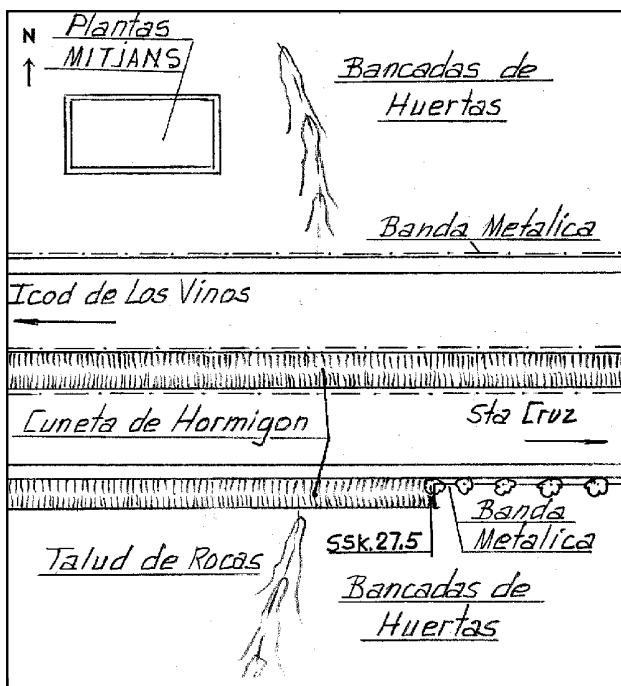 Plantas
MITJANS
N
Bancadas de
Huertas
Banda Metalica
Icod de Los Vinos
Cuneta de Hormigon
Sta Cruz
Banda
Metalica
SSK.27.5
Talud de Rocas
Bancadas de
Huertas